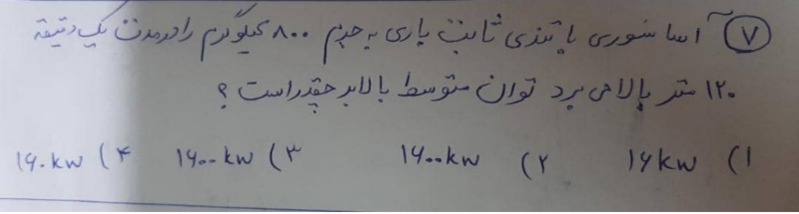 ۷) آسانسوری با تندی ثابت باری به جرم ۸۰۰ کیلوگرم را در مدت یک دقیقه
۱۲۰ متر بالا می برد توان متوسط بالابر چقدر است ؟
۱) ۱۶ kw ۲) ۱۶۰۰ kw ۳) ۱۶۰۰ kw ۴) ۱۶۰ kw